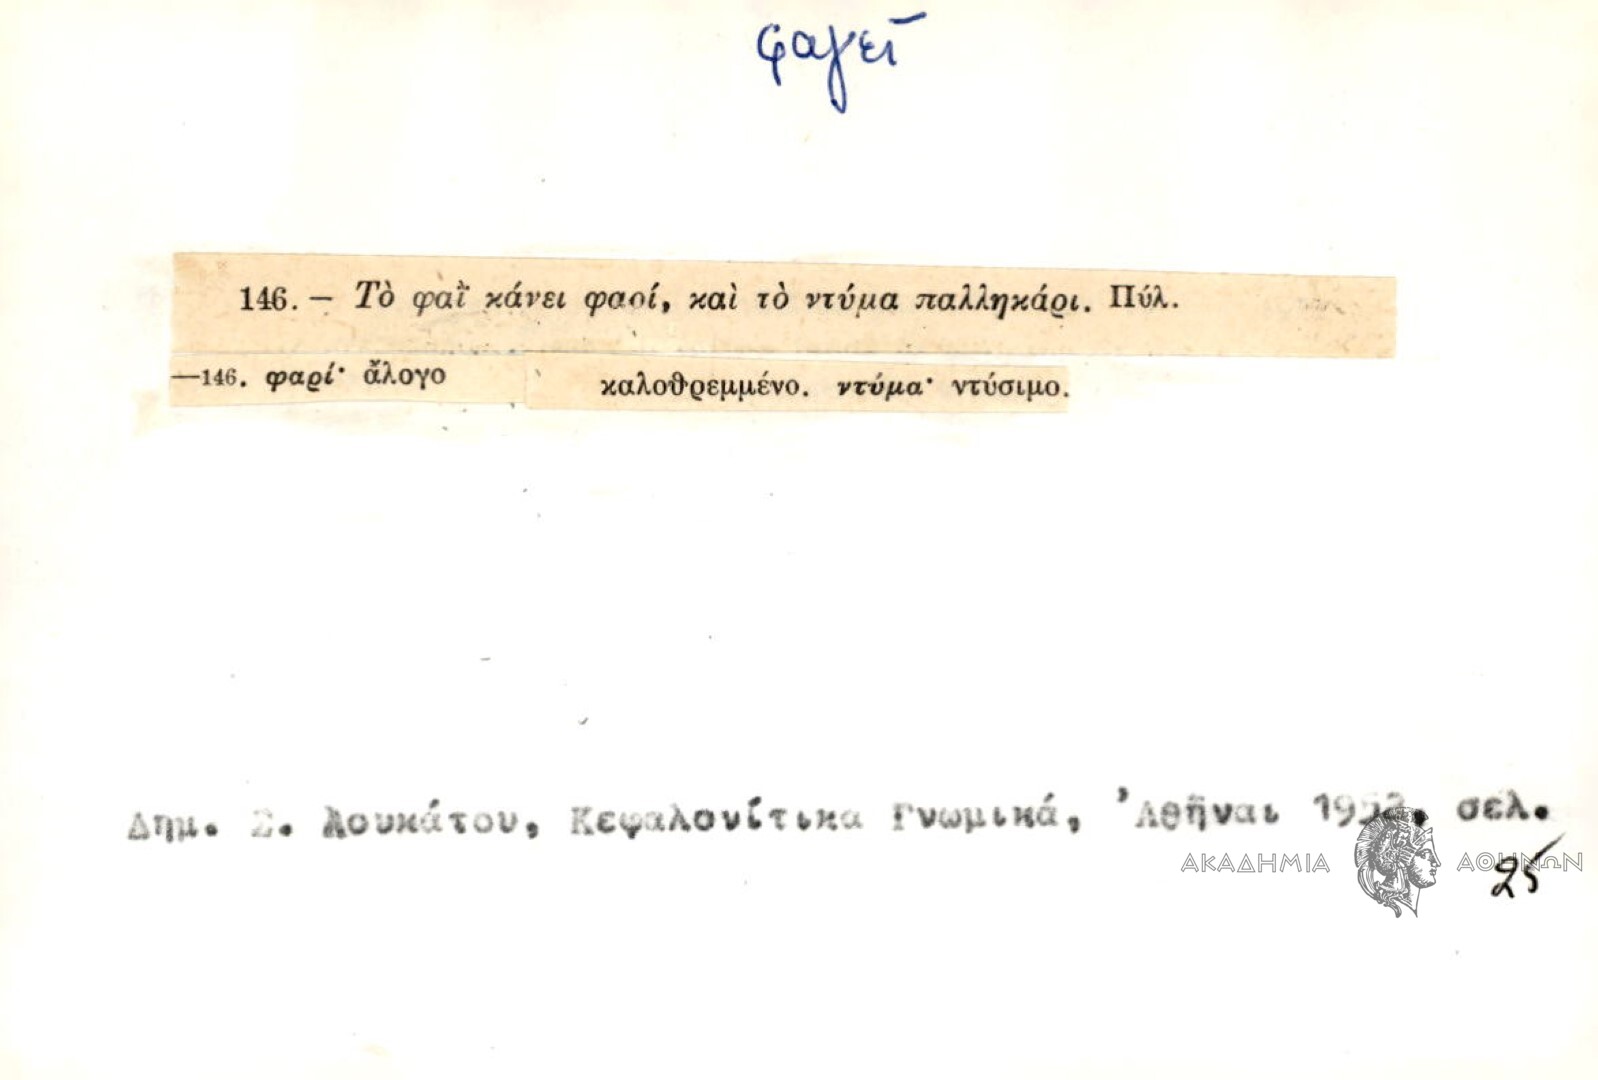 φαγεῖ
146. — Τὸ φαῒ κάνει φαρί, καὶ τὸ ντύμα παλληκάρι. Πύλ.
—146. φαρί· ἄλογο καλοθρεμμένο. ντύμα· ντύσιμο.
Δημ. Σ. Λουκάτου, Κεφαλονίτικα Γνωμικά, Ἀθῆναι 1952, σελ.
25
ΑΚΑΔΗΜΙΑ ΑΘΗΝΩΝ